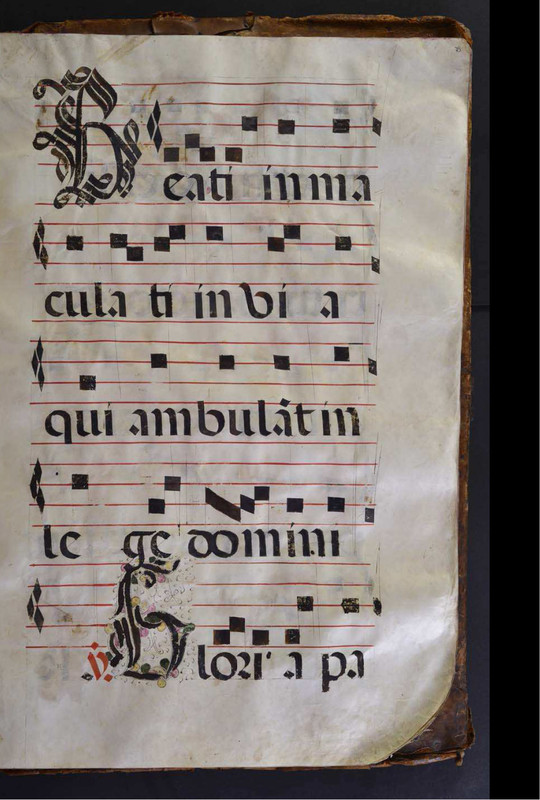 Beati in ma
cula ti in vi a
qui ambulāt in
le ge domini
℣. Glori a pa